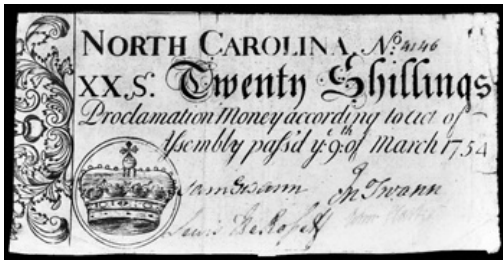 NORTH CAROLINA, No. 4146
XX,S. Twenty Shillings
Proclamation Money according to Act of
Assembly pass'd ye. 9th. of March 1754
Sam Swann Jn Swann
Lewis DeRosett